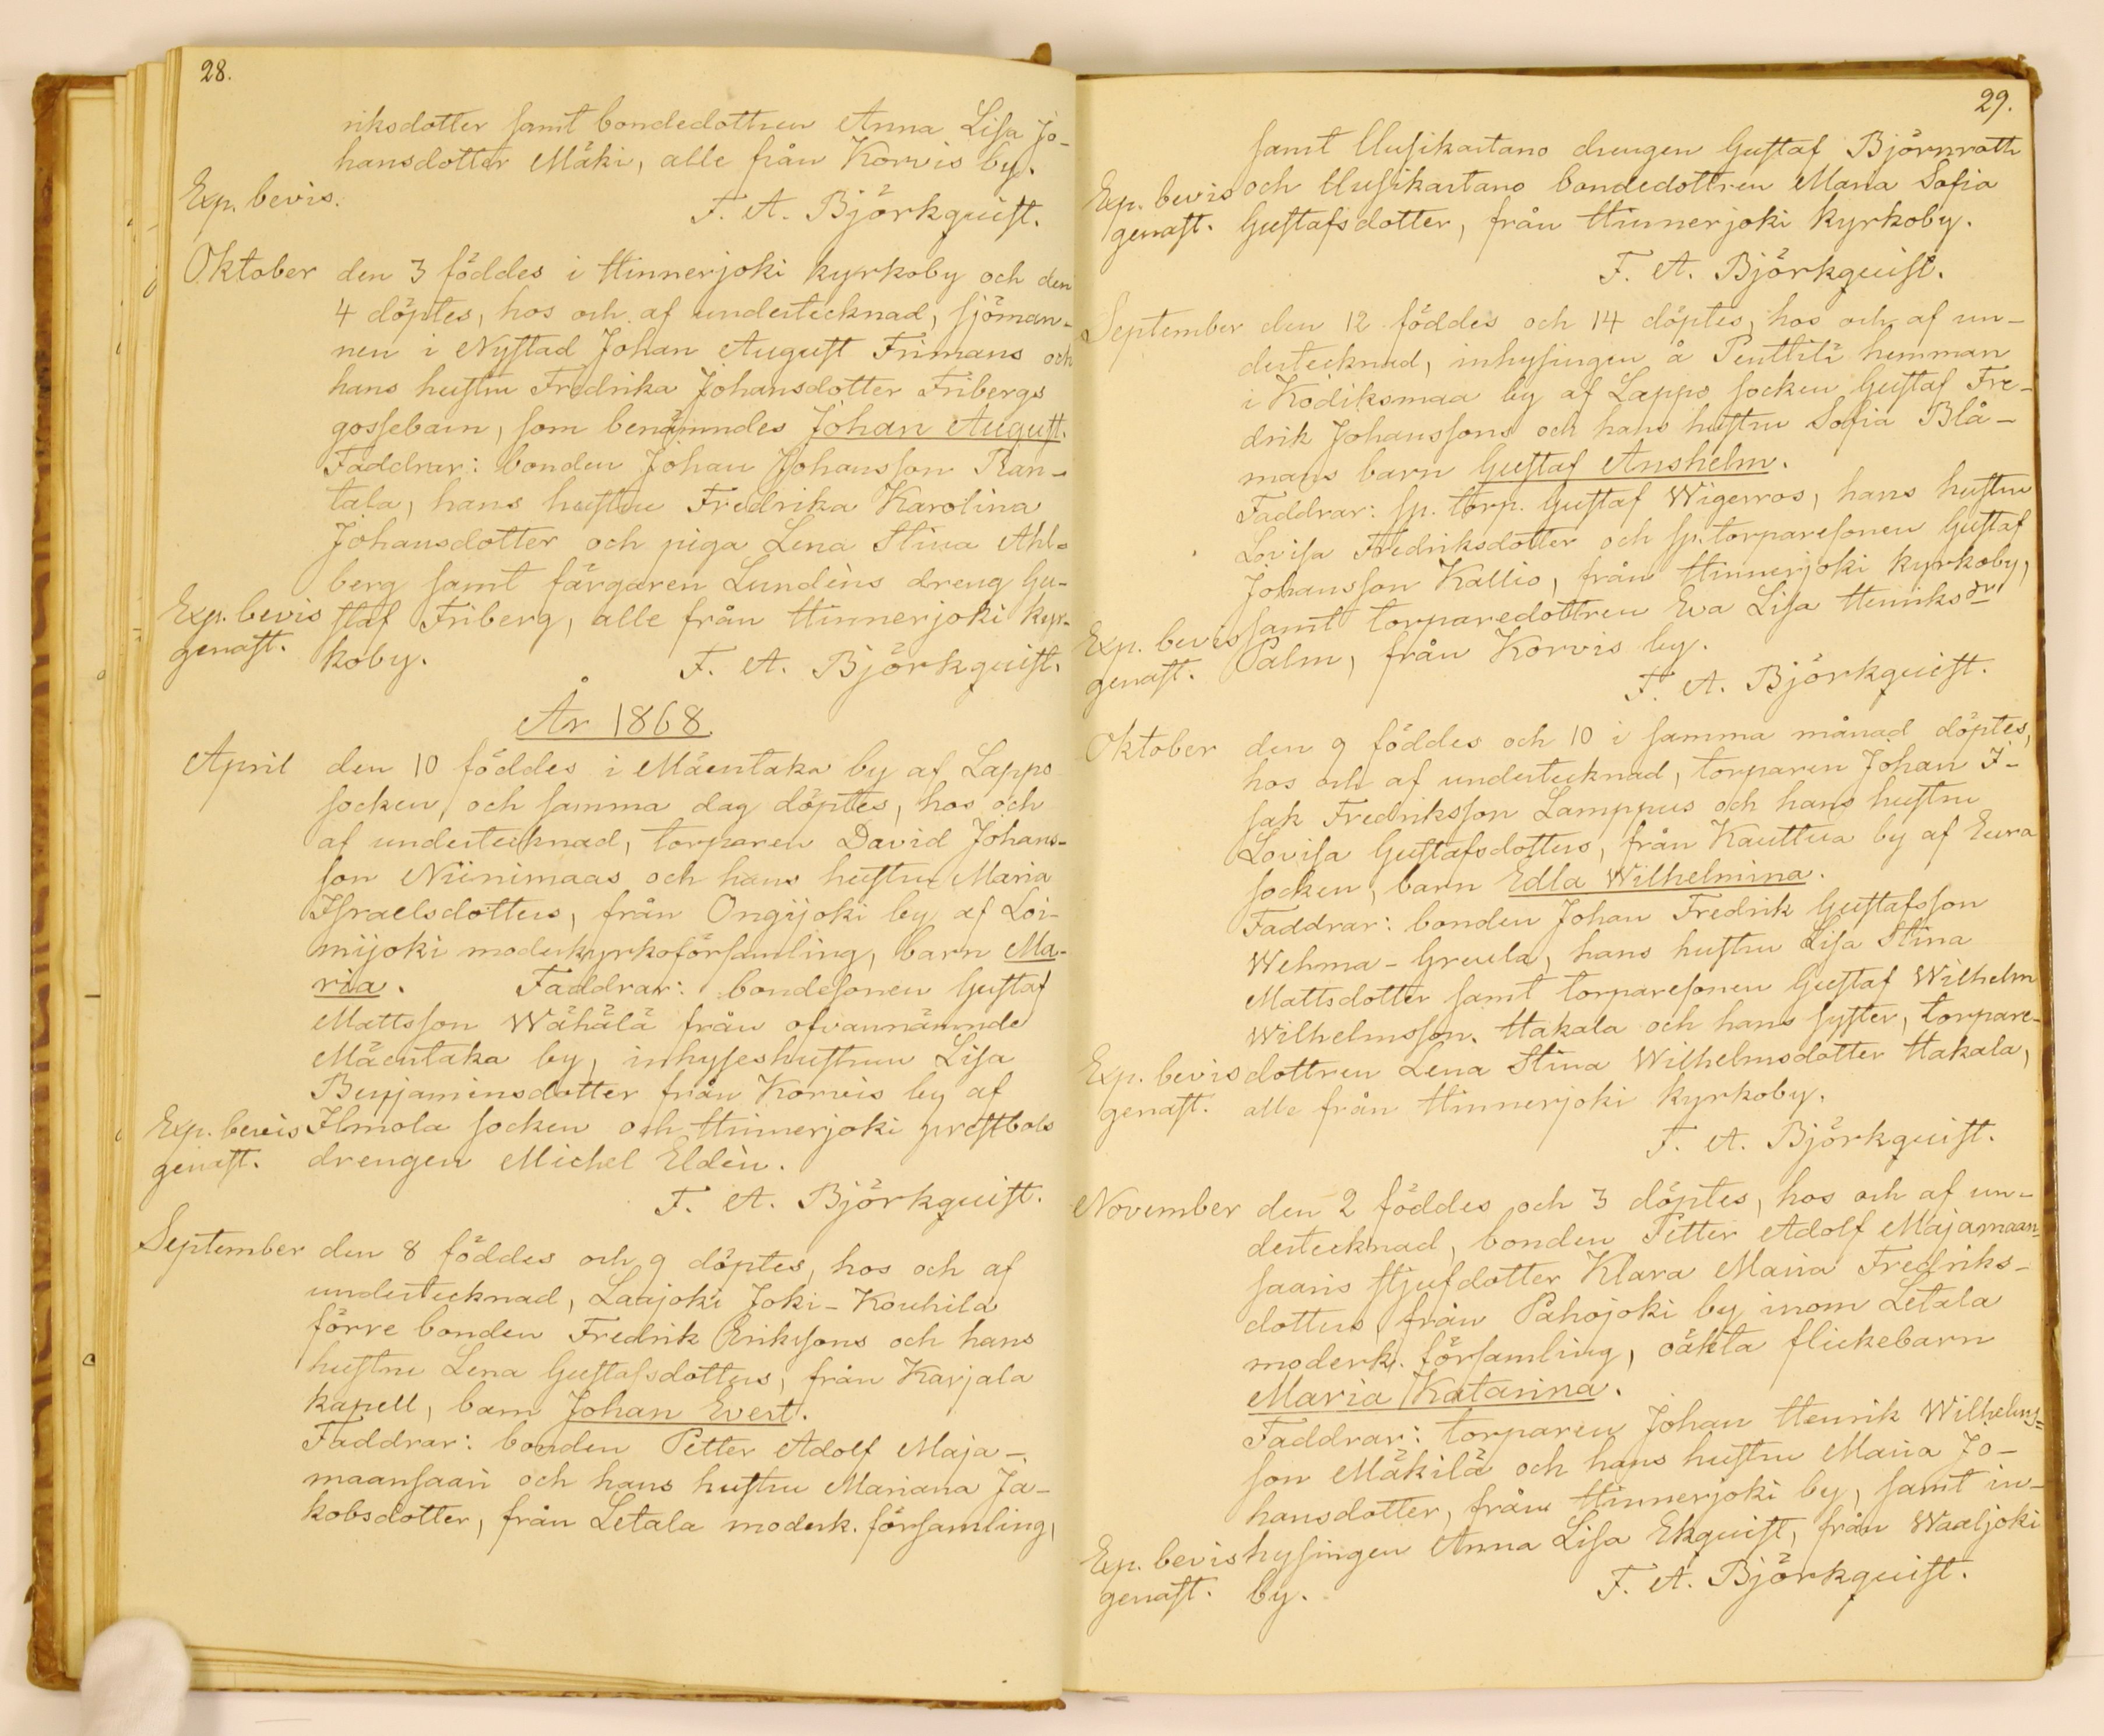 28.
riksdotter samt bondedottren Anna Lisa Jo-
hansdotter Mäki, alle från Korvis by.
Exp. bevis.
F. A. Björkquist.
Oktober den 3 föddes i Hinnerjoki kyrkoby och den
4 döptes, hos och af undertecknad, sjöman-
nen i Nystad Johan August Frimans och
hans hustru Fredrika Johansdotter Fribergs
gossebarn, som benämndes Johan August.
Faddrar: bonden Johan Johansson Ran-
tala, hans hustru Fredrika Karolina
Johansdotter och piga Lena Stina Ahl-
berg samt färgaren Lundèns dreng Gu-
Exp. bevis staf Friberg, alle från Hinnerjoki kyr-
genast. koby.
F. A. Björkquist.
År 1868.
April den 10 föddes i Mäentaka by af Lappo
socken, och samma dag döptes, hos och
af undertecknad, torparen David Johans-
son Niinimaas och hans hustru Maria
Israelsdotters, från Origijoki by af Loi-
mijoki moderkyrkoförsamling, barn Ma-
ria. Faddrar: bondesonen Gustaf
Mattsson Wähälä från ofvannämnde
Mäentaka by, inhyseshustrun Lisa
Benjaminsdotter från Korvis by af
Exp. bevis Ilmola socken och Hinnerjoki prestbols
genast. drengen Michel Eldèn.
F. A. Björkquist.
September den 8 föddes och 9 döptes, hos och af
undertecknad, Laajoki Joki-Kouhila
förre bonden Fredrik Erikssons och hans
hustru Lena Gustafsdotters, från Karjala
kapell, barn Johan Evert.
Faddrar: bonden Petter Adolf Maja-
maansaari och hans hustru Mariana Ja-
kobsdotter, från Letala moderk. församling,
29.
samt Uusikartano drengen Gustaf Björnroth
Exp. bevis och Uusikartano bondedottren Maria Sofia
genast. Gustafsdotter, från Hinnerjoki kyrkoby.
F. A. Björkquist.
September den 12 föddes och 14 döptes, hos och af un-
dertecknad, inhysingen å Penttili hemman
i Kodiksmaa by af Lappo socken Gustaf Fre-
drik Johanssons och hans hustru Sofia Blå-
mans barn Gustaf Anshelm.
Faddrar: sp. torp. Gustaf Wigerros, hans hustru
Lovisa Fredriksdotter och sp. torparesonen Gustaf
Johansson Kallio, från Hinnerjoki kyrkoby,
Exp. bevis samt torparedottren Eva Lisa Henriksdr
genast. Palm, från Korvis by.
F. A. Björkquist.
Oktober den 9 föddes och 10 i samma månad döptes,
hos och af undertecknad, torparen Johan I-
sak Fredriksson Lamppus och hans hustru
Lovisa Gustafsdotters, från Kauttua by af Eura
socken, barn Edla Wilhelmina.
Faddrar: bonden Johan Fredrik Gustafsson
Wehma-Greula, hans hustru Lisa Stina
Mattsdotter samt torparesonen Gustaf Wilhelm
Wilhelmsson Hakala och hans syster, torpare-
Exp. bevis dottren Lena Stina Wilhelmsdotter Hakala,
genast. alle från Hinnerjoki kyrkoby.
F. A. Björkquist.
November den 2 föddes och 3 döptes, hos och af un-
dertecknad, bonden Petter Adolf Majamaan-
saaris stjufdotter Klara Maria Fredriks-
dotters från Pahojoki by inom Letala
moderk. församling, oäkta flickebarn
Maria Katarina.
Faddrar: torparen Johan Henrik Wilhelms-
son Mäkilä och hans hustru Maria Jo-
hansdotter, från Hinnerjoki by, samt in-
Exp. bevis hysingen Anna Lisa Ekquist, från Waaljoki
genast. by.
F. A. Björkquist.